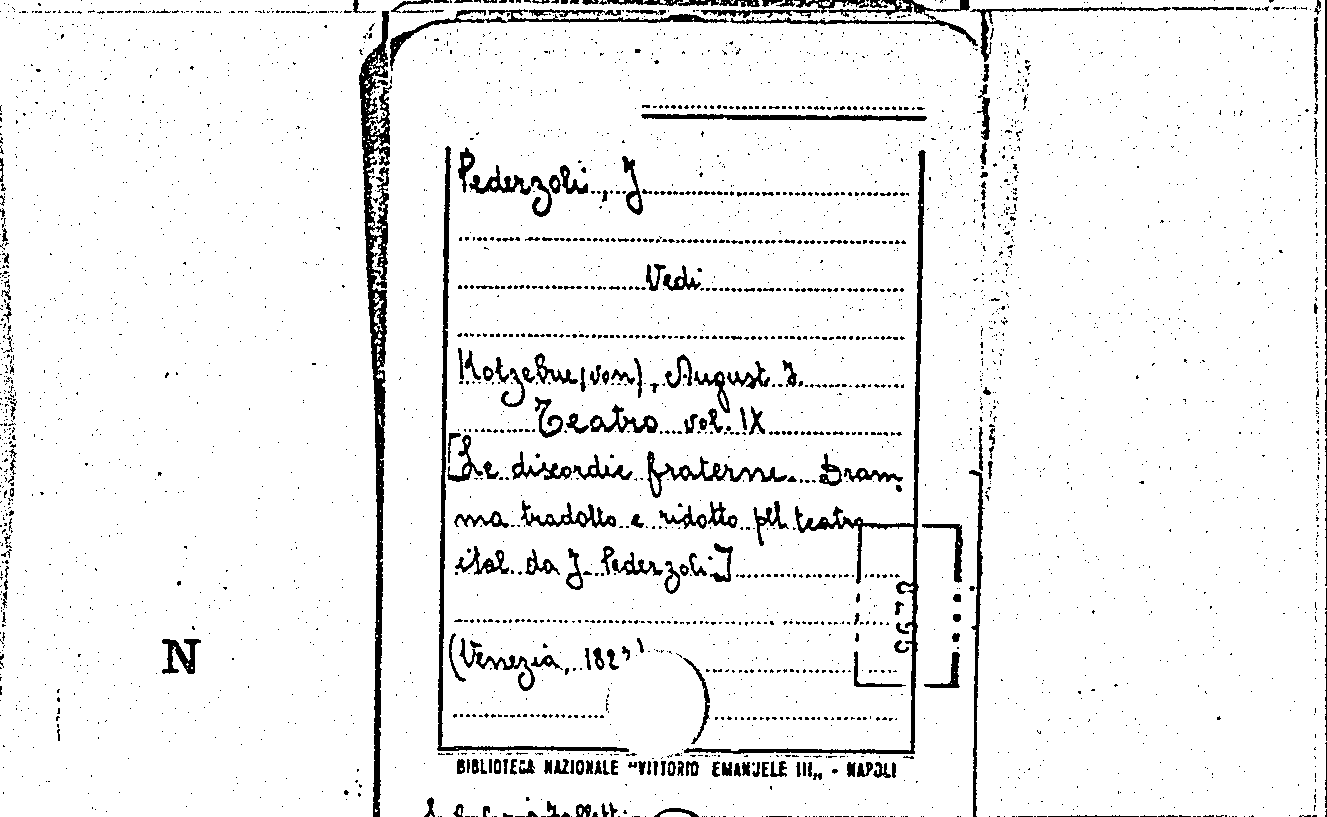 Pederzoli, J
Vedi
Kotzebue (von), August J.
Teatro vol. IX
[Le discordie fraterne. Dram.
ma tradotto e ridotto pel teatro
ital. da J. Pederzoli]
N
(Venezia,
BIBLIOTECA NAZIONALE "VITTORIO EMANUELE III„ - NAPOLI